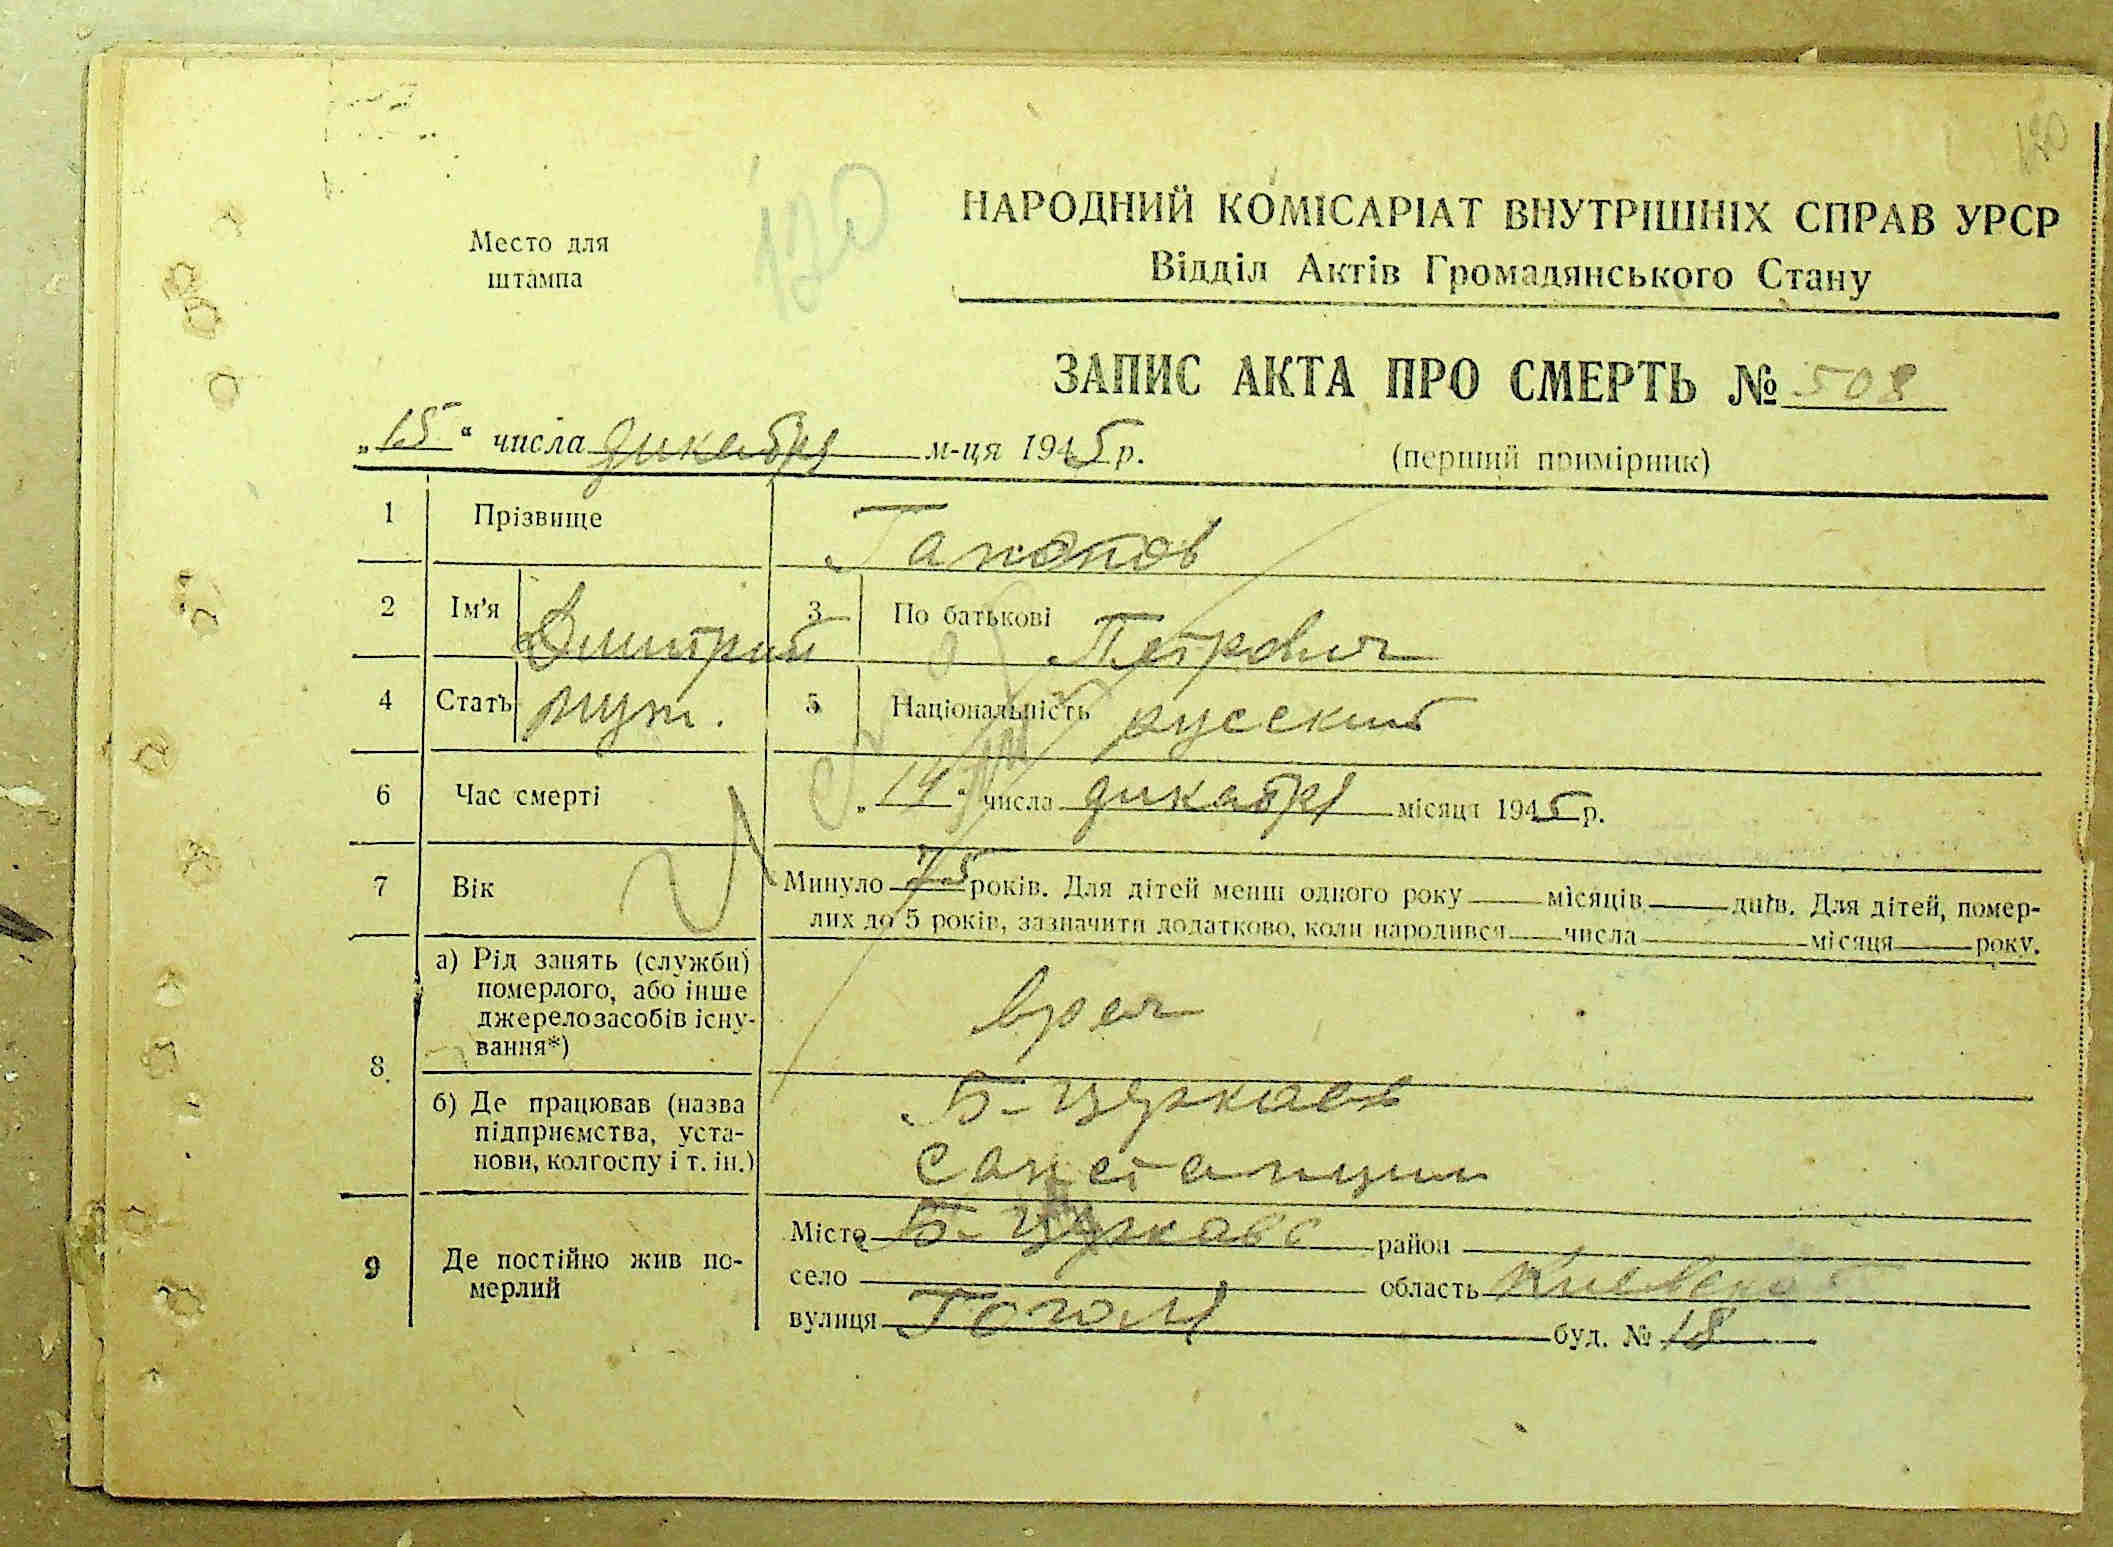 120
Место для
штампа
120
НАРОДНИЙ КОМІСАРІАТ ВНУТРІШНІХ СПРАВ УРСР
Відділ Актів Громадянського Стану
ЗАПИС АКТА ПРО СМЕРТЬ № 508
„15“ числа декабря м-ця 1945 р. (перший примірник)
1 Прізвище Гапонов
2 Ім'я Дмитрий 3 По батькові Петрович
4 Стать муж. 5 Національність русский
6 Час смерті „14“ числа декабря місяця 1945 р.
7 Вік Минуло 75 років. Для дітей менш одного року ___ місяців ___ днів. Для дітей, помер-
лих до 5 років, зазначити додатково, коли народився ___ числа ___ місяця ___ року.
8 а) Рід занять (служби)
померлого, або інше
джерело засобів існу-
вання*) врач
б) Де працював (назва
підприємства, уста-
нови, колгоспу і т. ін.) Б-Церков
санстанции
9 Де постійно жив по-
мерлий
Місто Б-Церковь район
село ___ область Киевской
вулиця Гоголя буд. № 18